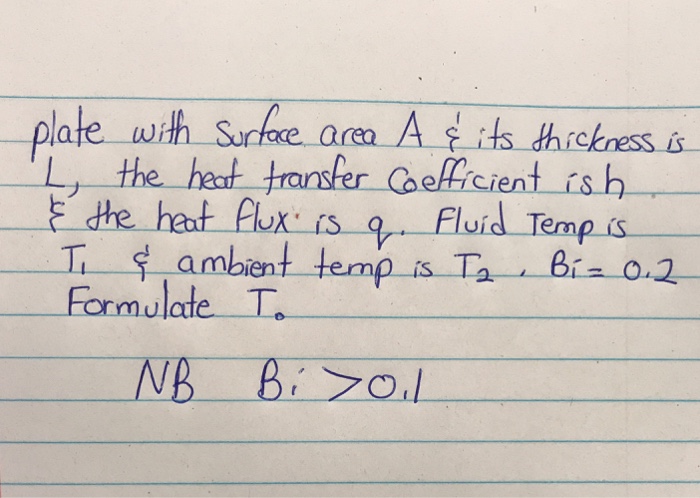 plate with surface area A & its thickness is
L, the heat transfer Coefficient is h
& the heat flux is q. Fluid Temp is
T₁ & ambient temp is T₂, Bi = 0.2
Formulate T.
NB Bi > 0.1